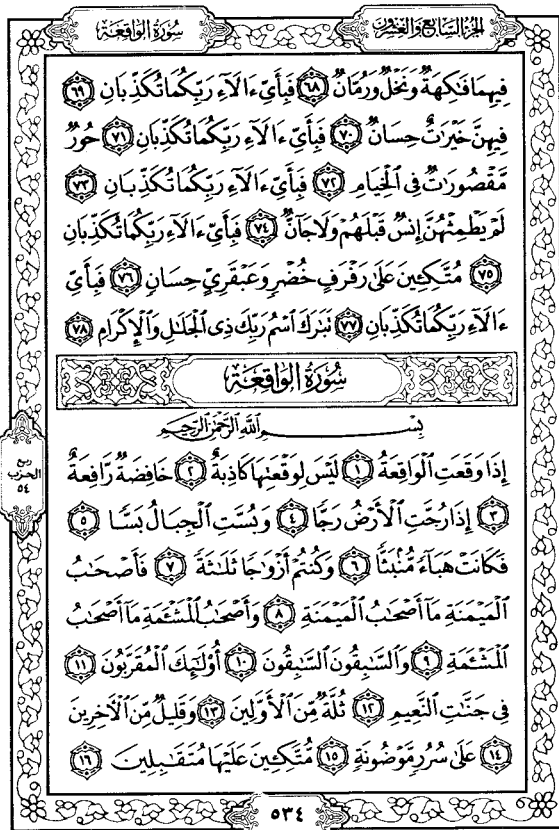 الجُزْءُ السَّابِعُ وَالعِشْرُونَ
سُورَةُ الوَاقِعَةِ
فِيهِمَا فَٰكِهَةٌ وَنَخْلٌ وَرُمَّانٌ ٦٨ فَبِأَيِّ ءَالَآءِ رَبِّكُمَا تُكَذِّبَانِ ٦٩
فِيهِنَّ خَيْرَٰتٌ حِسَانٌ ٧٠ فَبِأَيِّ ءَالَآءِ رَبِّكُمَا تُكَذِّبَانِ ٧١ حُورٌ
مَّقْصُورَٰتٌ فِي ٱلْخِيَامِ ٧٢ فَبِأَيِّ ءَالَآءِ رَبِّكُمَا تُكَذِّبَانِ ٧٣
لَمْ يَطْمِثْهُنَّ إِنسٌ قَبْلَهُمْ وَلَا جَآنٌّ ٧٤ فَبِأَيِّ ءَالَآءِ رَبِّكُمَا تُكَذِّبَانِ
٧٥ مُتَّكِـِٔينَ عَلَىٰ رَفْرَفٍ خُضْرٍ وَعَبْقَرِيٍّ حِسَانٍ ٧٦ فَبِأَيِّ
ءَالَآءِ رَبِّكُمَا تُكَذِّبَانِ ٧٧ تَبَٰرَكَ ٱسْمُ رَبِّكَ ذِي ٱلْجَلَٰلِ وَٱلْإِكْرَامِ ٧٨
سُورَةُ الوَاقِعَةِ
بِسْمِ ٱللَّهِ ٱلرَّحْمَٰنِ ٱلرَّحِيمِ
إِذَا وَقَعَتِ ٱلْوَاقِعَةُ ١ لَيْسَ لِوَقْعَتِهَا كَاذِبَةٌ ٢ خَافِضَةٌ رَّافِعَةٌ
٣ إِذَا رُجَّتِ ٱلْأَرْضُ رَجًّا ٤ وَبُسَّتِ ٱلْجِبَالُ بَسًّا ٥
فَكَانَتْ هَبَآءً مُّنۢبَثًّا ٦ وَكُنتُمْ أَزْوَٰجًا ثَلَٰثَةً ٧ فَأَصْحَٰبُ
ٱلْمَيْمَنَةِ مَآ أَصْحَٰبُ ٱلْمَيْمَنَةِ ٨ وَأَصْحَٰبُ ٱلْمَشْـَٔمَةِ مَآ أَصْحَٰبُ
ٱلْمَشْـَٔمَةِ ٩ وَٱلسَّٰبِقُونَ ٱلسَّٰبِقُونَ ١٠ أُو۟لَٰٓئِكَ ٱلْمُقَرَّبُونَ ١١
فِي جَنَّٰتِ ٱلنَّعِيمِ ١٢ ثُلَّةٌ مِّنَ ٱلْأَوَّلِينَ ١٣ وَقَلِيلٌ مِّنَ ٱلْـَٔاخِرِينَ
١٤ عَلَىٰ سُرُرٍ مَّوْضُونَةٍ ١٥ مُّتَّكِـِٔينَ عَلَيْهَا مُتَقَٰبِلِينَ ١٦
ربع
الحزب
٥٤
٥٣٤